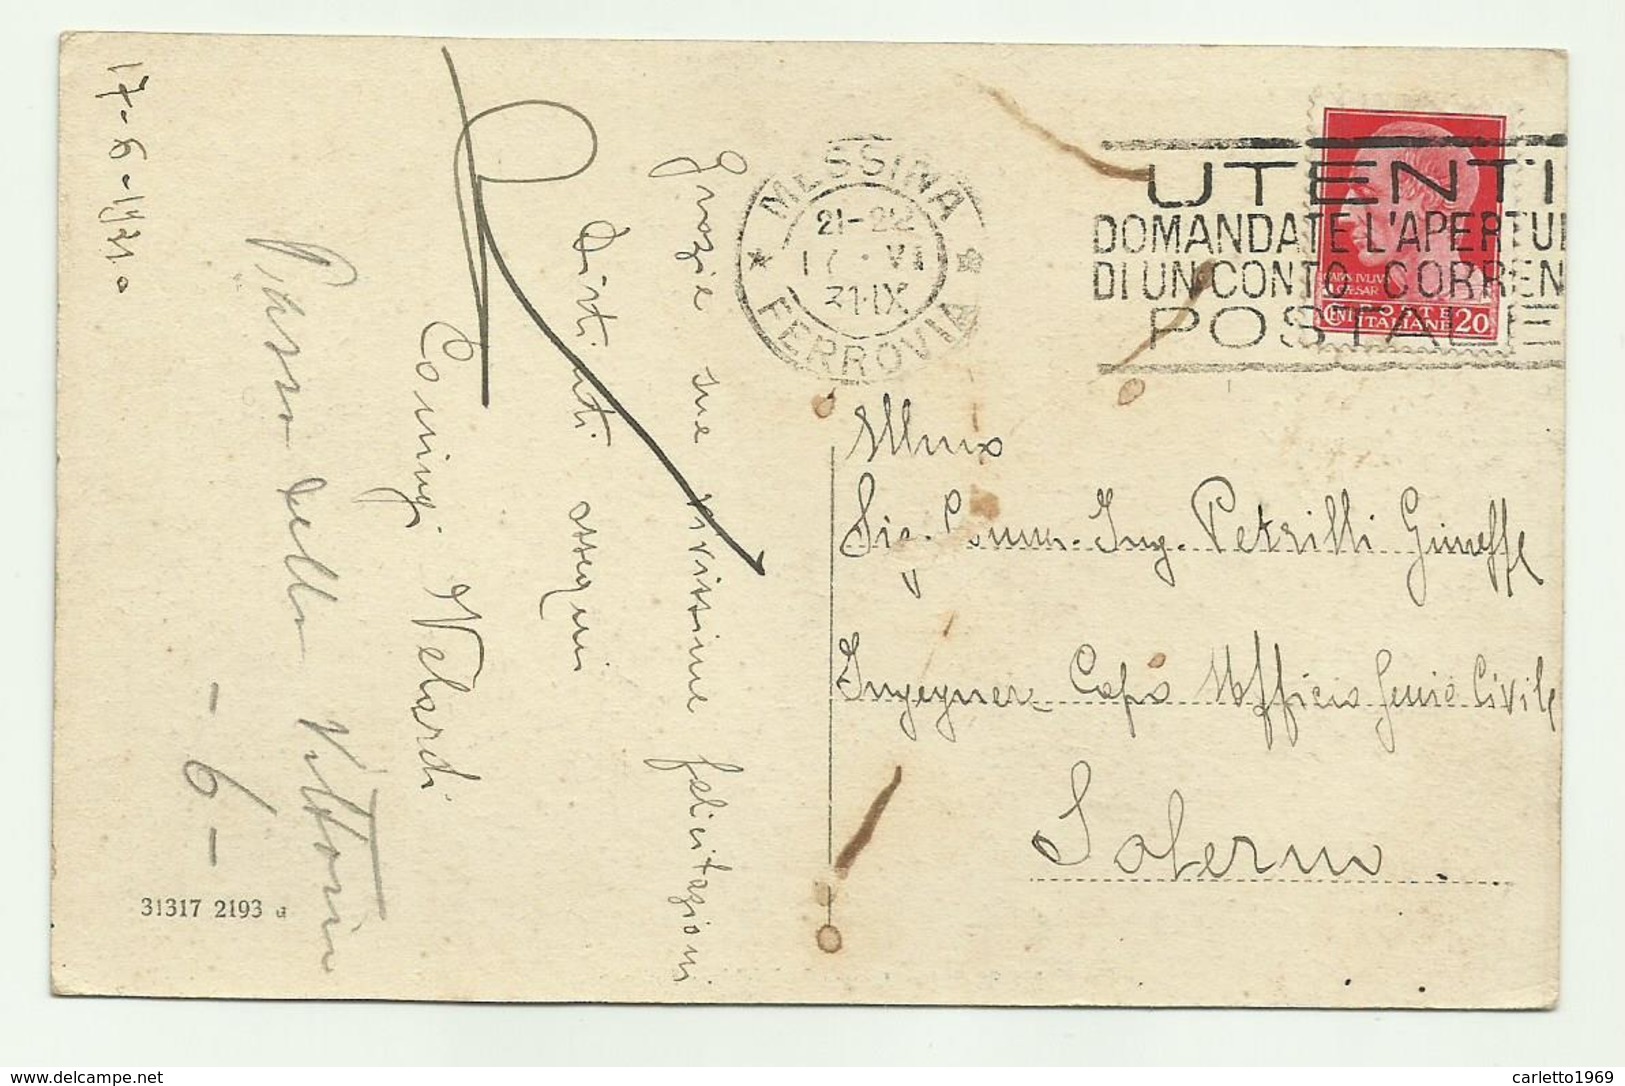 17-6-1931.
Grazie sue vivissime felicitazioni
Distinti ossequi
Coniugi Velardi
Passo della Vittoria
-6-
31317 2193 d
MESSINA
21-22
17·VI
31·IX
FERROVIA
UTENTI
DOMANDATE L'APERTU
DI UN CONTO CORREN
POSTALE
CAIVS IVLIVS
CAESAR
CENT 20
POSTE
ITALIANE
Illmo
Sig. Comm. Ing. Petrilli Giuseppe
Ingegnere Capo Ufficio Genio Civile
Salerno
delcampe.net
carletto1969